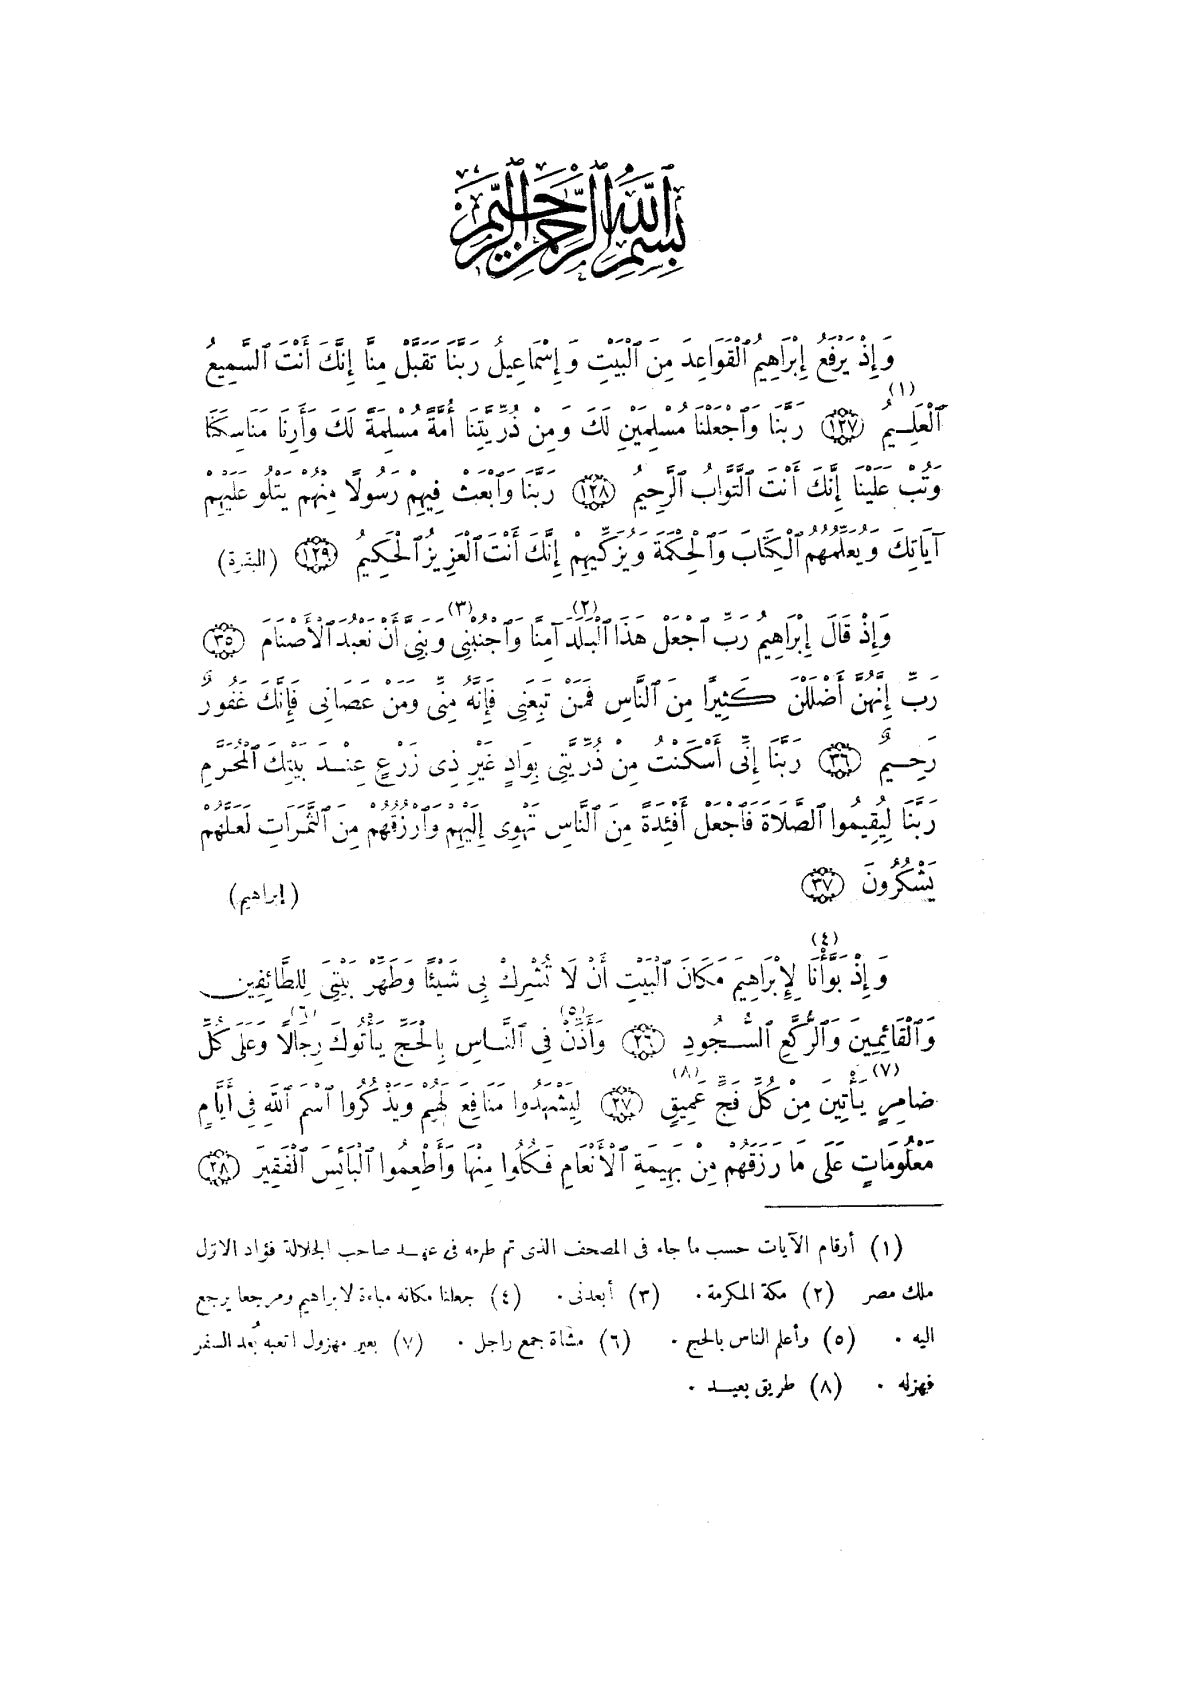 بِسْمِ ٱللَّهِ ٱلرَّحْمَٰنِ ٱلرَّحِيمِ
وَإِذْ يَرْفَعُ إِبْرَاهِيمُ ٱلْقَوَاعِدَ مِنَ ٱلْبَيْتِ وَإِسْمَاعِيلُ رَبَّنَا تَقَبَّلْ مِنَّا إِنَّكَ أَنْتَ ٱلسَّمِيعُ
ٱلْعَلِيمُ (١) ١٢٧ رَبَّنَا وَٱجْعَلْنَا مُسْلِمَيْنِ لَكَ وَمِنْ ذُرِّيَّتِنَا أُمَّةً مُسْلِمَةً لَكَ وَأَرِنَا مَنَاسِكَنَا
وَتُبْ عَلَيْنَا إِنَّكَ أَنْتَ ٱلتَّوَّابُ ٱلرَّحِيمُ ١٢٨ رَبَّنَا وَٱبْعَثْ فِيهِمْ رَسُولًا مِنْهُمْ يَتْلُو عَلَيْهِمْ
آيَاتِكَ وَيُعَلِّمُهُمُ ٱلْكِتَابَ وَٱلْحِكْمَةَ وَيُزَكِّيهِمْ إِنَّكَ أَنْتَ ٱلْعَزِيزُ ٱلْحَكِيمُ ١٢٩ (البقرة)
وَإِذْ قَالَ إِبْرَاهِيمُ رَبِّ ٱجْعَلْ هَذَا ٱلْبَلَدَ (٢) آمِنًا وَٱجْنُبْنِى (٣) وَبَنِىَّ أَنْ نَعْبُدَ ٱلْأَصْنَامَ ٣٥
رَبِّ إِنَّهُنَّ أَضْلَلْنَ كَثِيرًا مِنَ ٱلنَّاسِ فَمَنْ تَبِعَنِى فَإِنَّهُ مِنِّى وَمَنْ عَصَانِى فَإِنَّكَ غَفُورٌ
رَحِيمٌ ٣٦ رَبَّنَا إِنِّى أَسْكَنْتُ مِنْ ذُرِّيَّتِى بِوَادٍ غَيْرِ ذِى زَرْعٍ عِنْدَ بَيْتِكَ ٱلْمُحَرَّمِ
رَبَّنَا لِيُقِيمُوا ٱلصَّلَاةَ فَٱجْعَلْ أَفْئِدَةً مِنَ ٱلنَّاسِ تَهْوِى إِلَيْهِمْ وَٱرْزُقْهُمْ مِنَ ٱلثَّمَرَاتِ لَعَلَّهُمْ
يَشْكُرُونَ ٣٧ (إبراهيم)
وَإِذْ بَوَّأْنَا (٤) لِإِبْرَاهِيمَ مَكَانَ ٱلْبَيْتِ أَنْ لَا تُشْرِكْ بِى شَيْئًا وَطَهِّرْ بَيْتِىَ لِلطَّائِفِينَ
وَٱلْقَائِمِينَ وَٱلرُّكَّعِ ٱلسُّجُودِ ٢٦ وَأَذِّنْ (٥) فِى ٱلنَّاسِ بِٱلْحَجِّ يَأْتُوكَ رِجَالًا (٦) وَعَلَى كُلِّ
ضَامِرٍ (٧) يَأْتِينَ مِنْ كُلِّ فَجٍّ عَمِيقٍ (٨) ٢٧ لِيَشْهَدُوا مَنَافِعَ لَهُمْ وَيَذْكُرُوا ٱسْمَ ٱللَّهِ فِى أَيَّامٍ
مَعْلُومَاتٍ عَلَى مَا رَزَقَهُمْ مِنْ بَهِيمَةِ ٱلْأَنْعَامِ فَكُلُوا مِنْهَا وَأَطْعِمُوا ٱلْبَائِسَ ٱلْفَقِيرَ ٢٨
(١) أرقام الآيات حسب ما جاء فى المصحف الذى تم طبعه فى عهد صاحب الجلالة فؤاد الاول
ملك مصر (٢) مكة المكرمة. (٣) أبعدنى. (٤) جعلنا مكانه مباءة لابراهيم ومرجعا يرجع
اليه. (٥) وأعلم الناس بالحج. (٦) مشاة جمع راجل. (٧) بعير مهزول اتعبه بُعد السفر
فهزله. (٨) طريق بعيد.